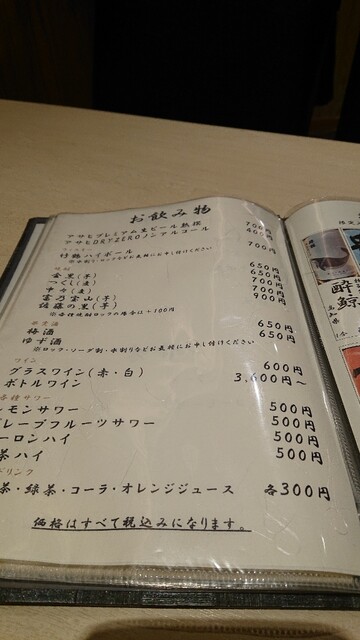 お飲み物
アサヒプレミアム生ビール熟撰 700円
アサヒDRYZEROノンアルコール 400円
竹鶴ハイボール 700円
※水割・ロックなどお気軽にお申し付けください
金黒(芋) 650円
つくし(麦) 650円
中々(麦) 700円
富乃宝山(芋) 700円
佐藤の黒(芋) 900円
※各種焼酎ロックの場合は+100円
果実酒
梅酒 650円
ゆず酒 650円
※ロック・ソーダ割・水割りなどお気軽にお申し付けください
ワイン
グラスワイン(赤・白) 600円
ボトルワイン 3,600円～
各種サワー
モンサワー 500円
レープフルーツサワー 500円
ーロンハイ 500円
茶ハイ 500円
ドリンク
茶・緑茶・コーラ・オレンジジュース 各300円
価格はすべて税込みになります。
酔
鯨
高知県